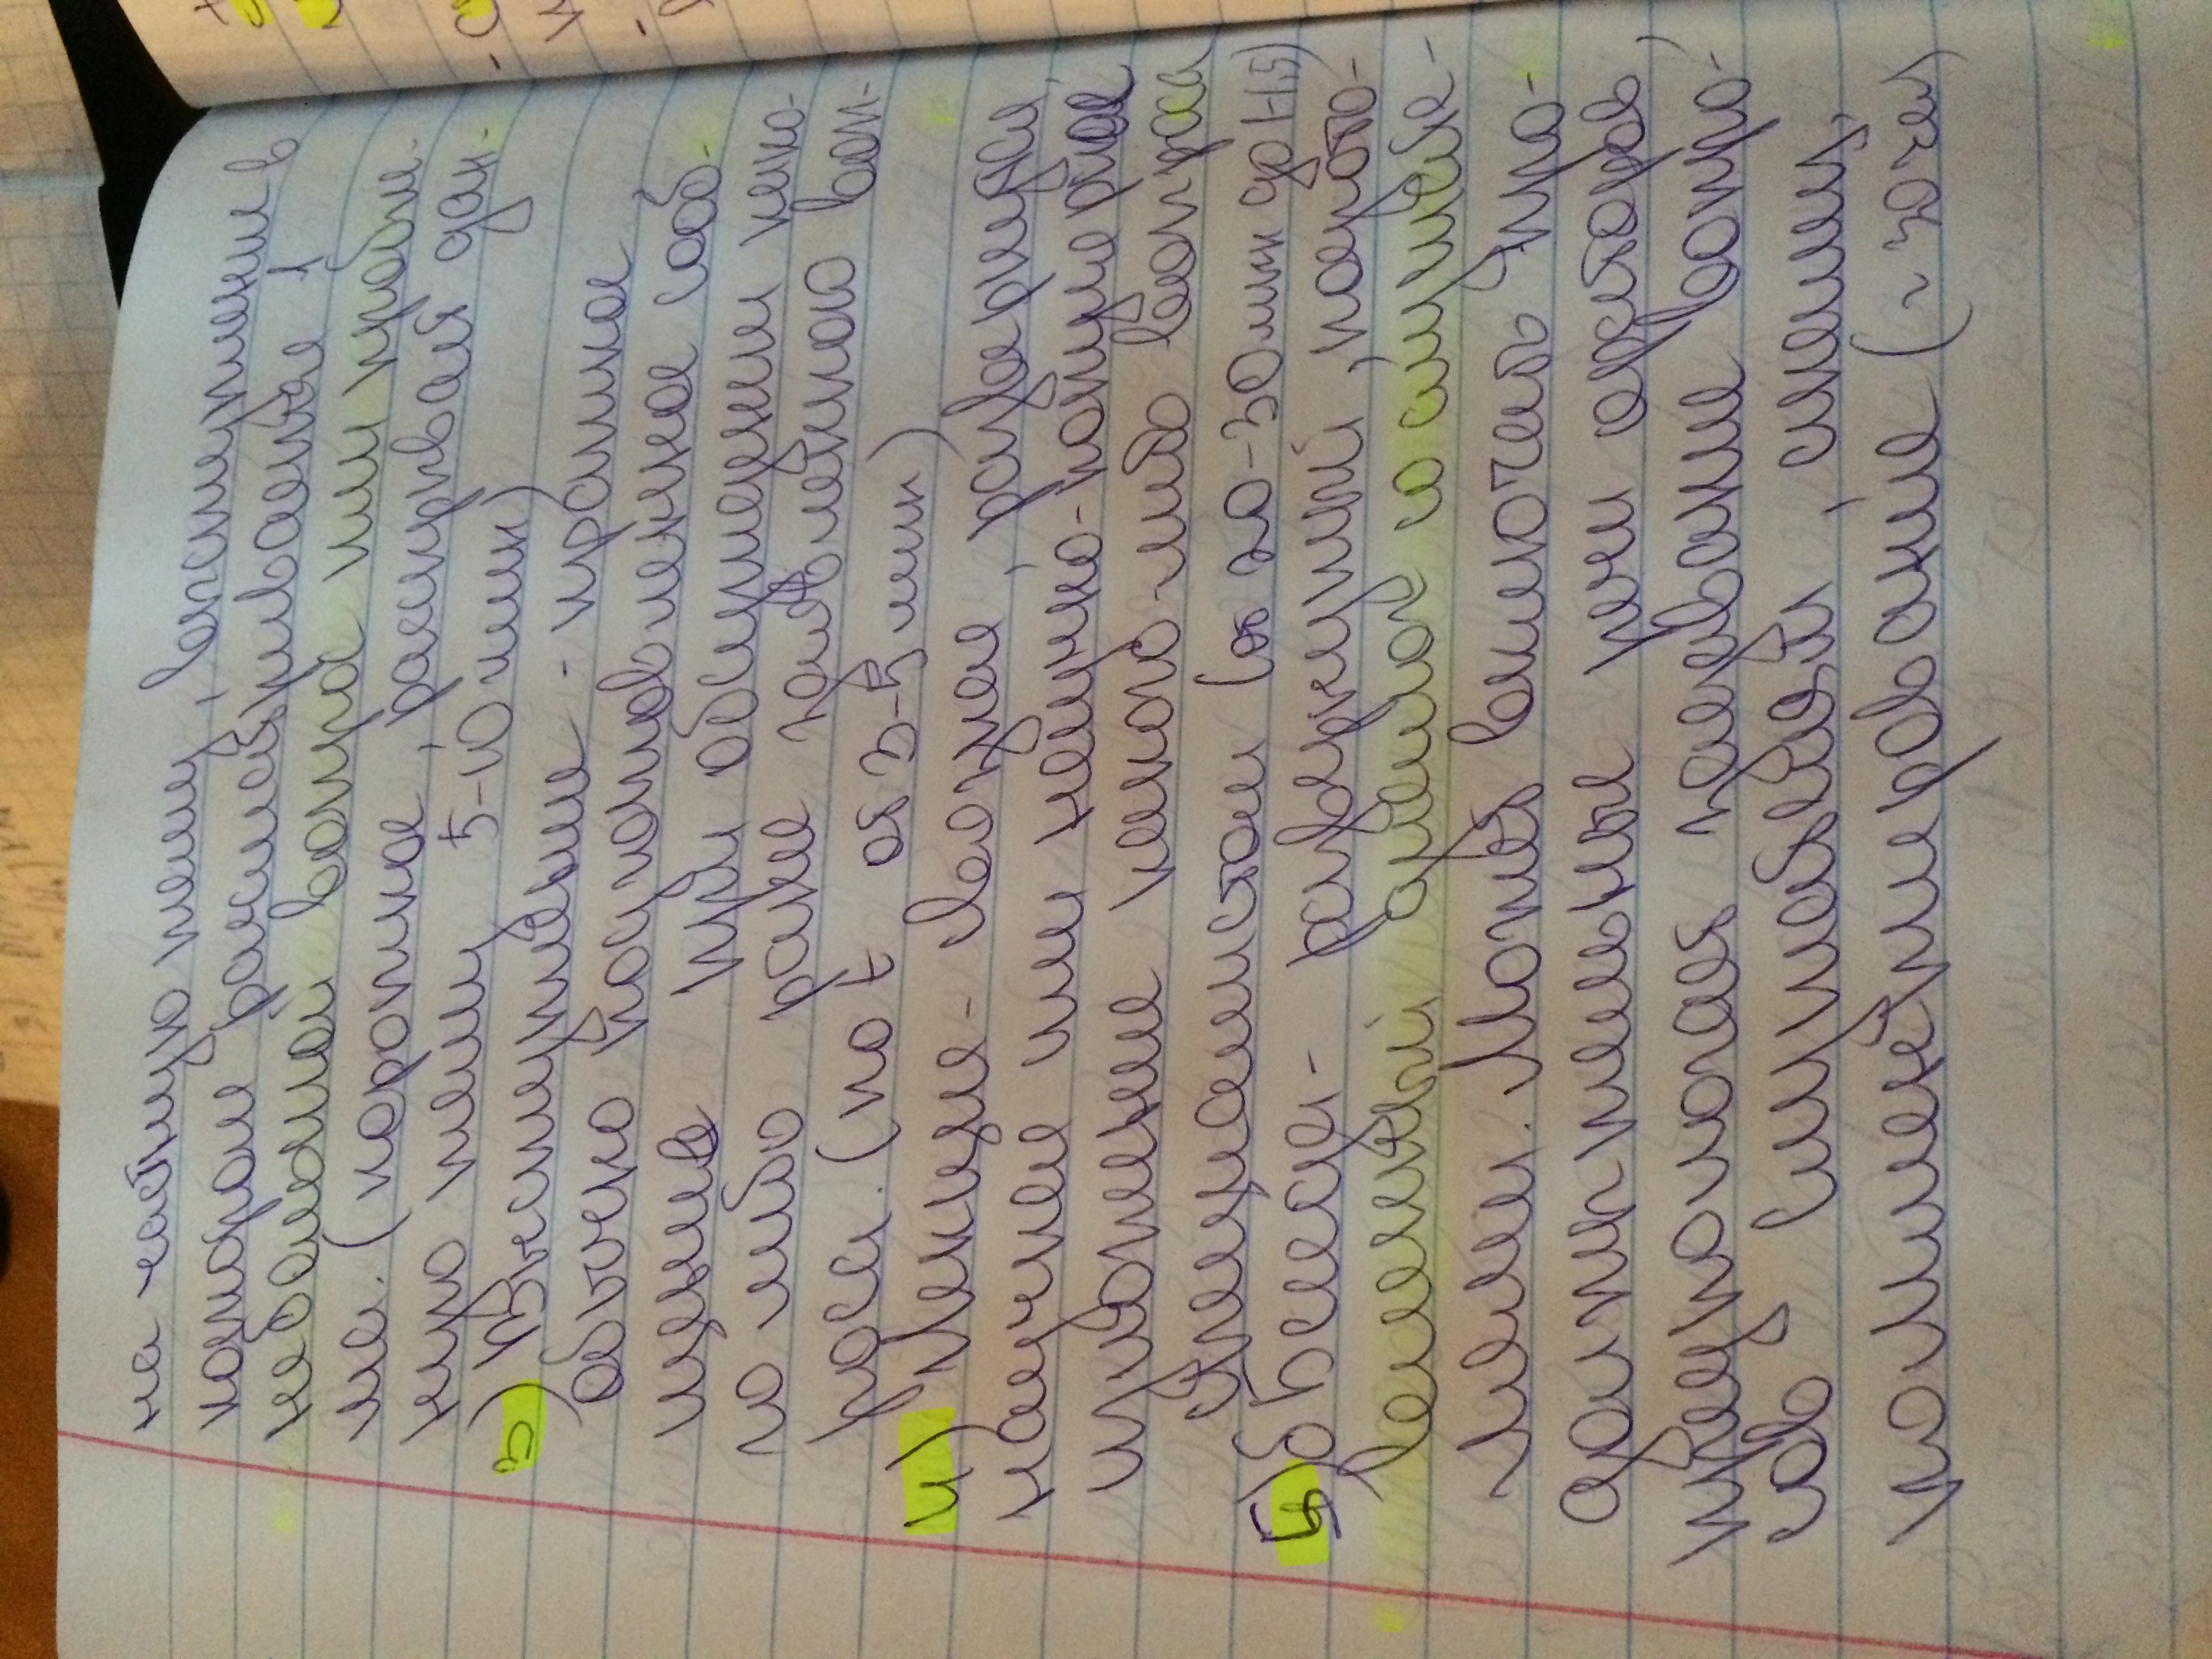 на частную тему, выступление в
котором рассматривается 1
небольшой вопрос или пробле-
ма. (короткое, раскрывает дан-
ную тему 5-10 мин)
3) Выступление - краткое,
обычно подготовленное сооб-
щение при обсуждении како-
го либо ранее заявленного воп-
роса. (по t от 3-5 мин)
4) Лекция - связная, развернутая,
научная или научно-популярное
изложение какого-либо вопроса
специалистом (от 20-30 мин до 1-1,5)
5) Беседа - развернутый, подгото-
вленный диалог со слушате-
лями. Может включать про-
должительные речи ораторов,
предпологает задавание вопро-
сов слушателям, их
комментирование (≈ 30 чел)